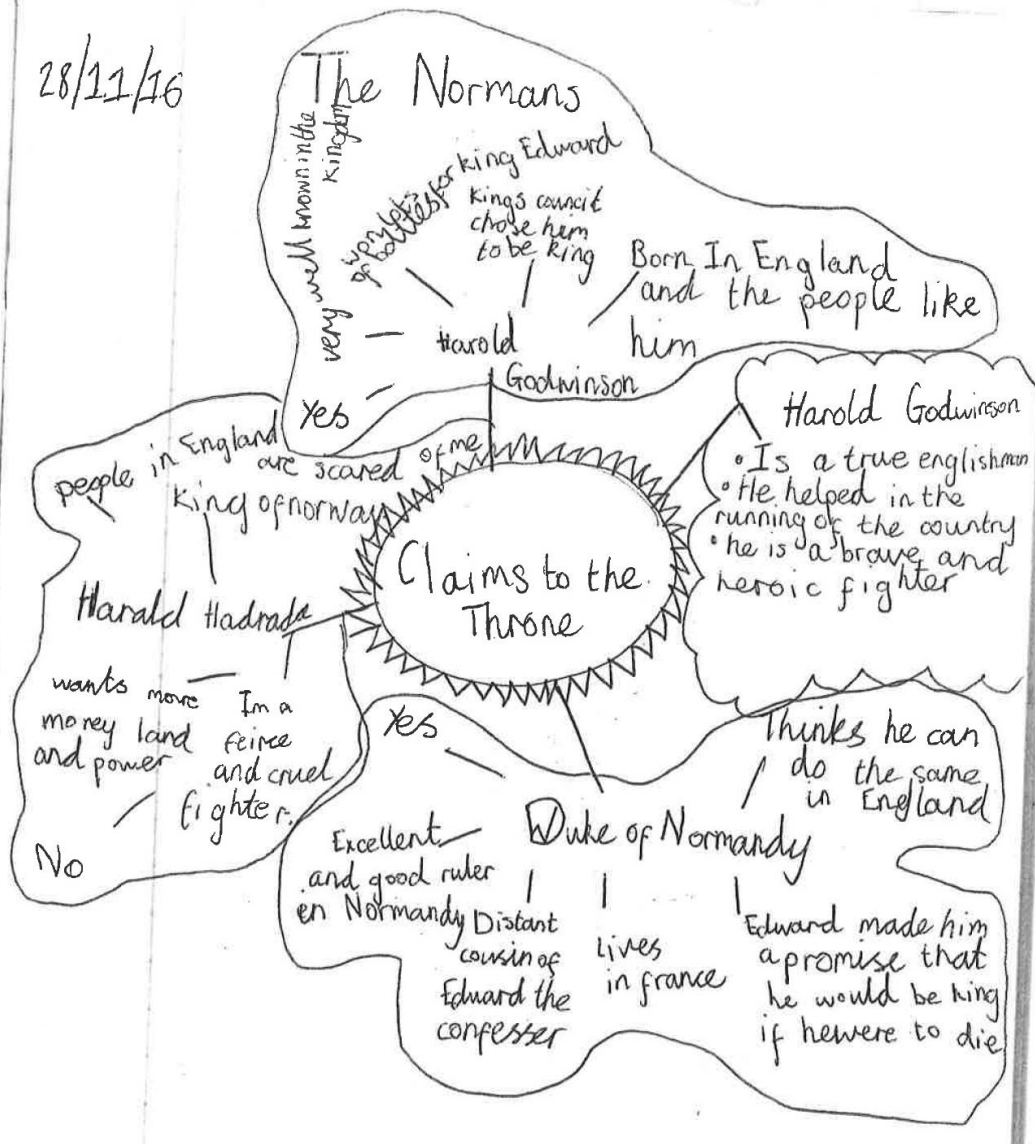 28/11/16
The Normans
very well known in the
kingdom
won lots
of battles for king Edward
Kings council
chose him
to be king
Born In England
and the people like
him
Harold
Godwinson
Yes
Harold Godwinson
• Is a true englishman
• He helped in the
running of the country
• he is a brave and
heroic fighter
people in England
are scared of me
King of norway
Harald Hadrada
wants more
money land
and power
Im a
feirce
and cruel
fighter.
No
Claims to the
Throne
Yes
Thinks he can
do the same
in England
Duke of Normandy
Excellent
and good ruler
en Normandy
Distant
cousin of
Eduard the
confesser
Lives
in france
Edward made him
a promise that
he would be king
if he were to die